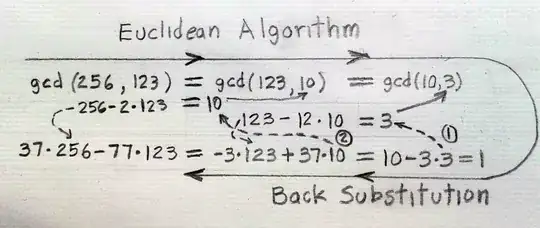 Euclidean Algorithm
gcd(256, 123) = gcd(123, 10) = gcd(10, 3)
256-2·123 = 10
123 - 12·10 = 3
② ①
37·256-77·123 = -3·123+37·10 = 10-3·3 = 1
Back Substitution